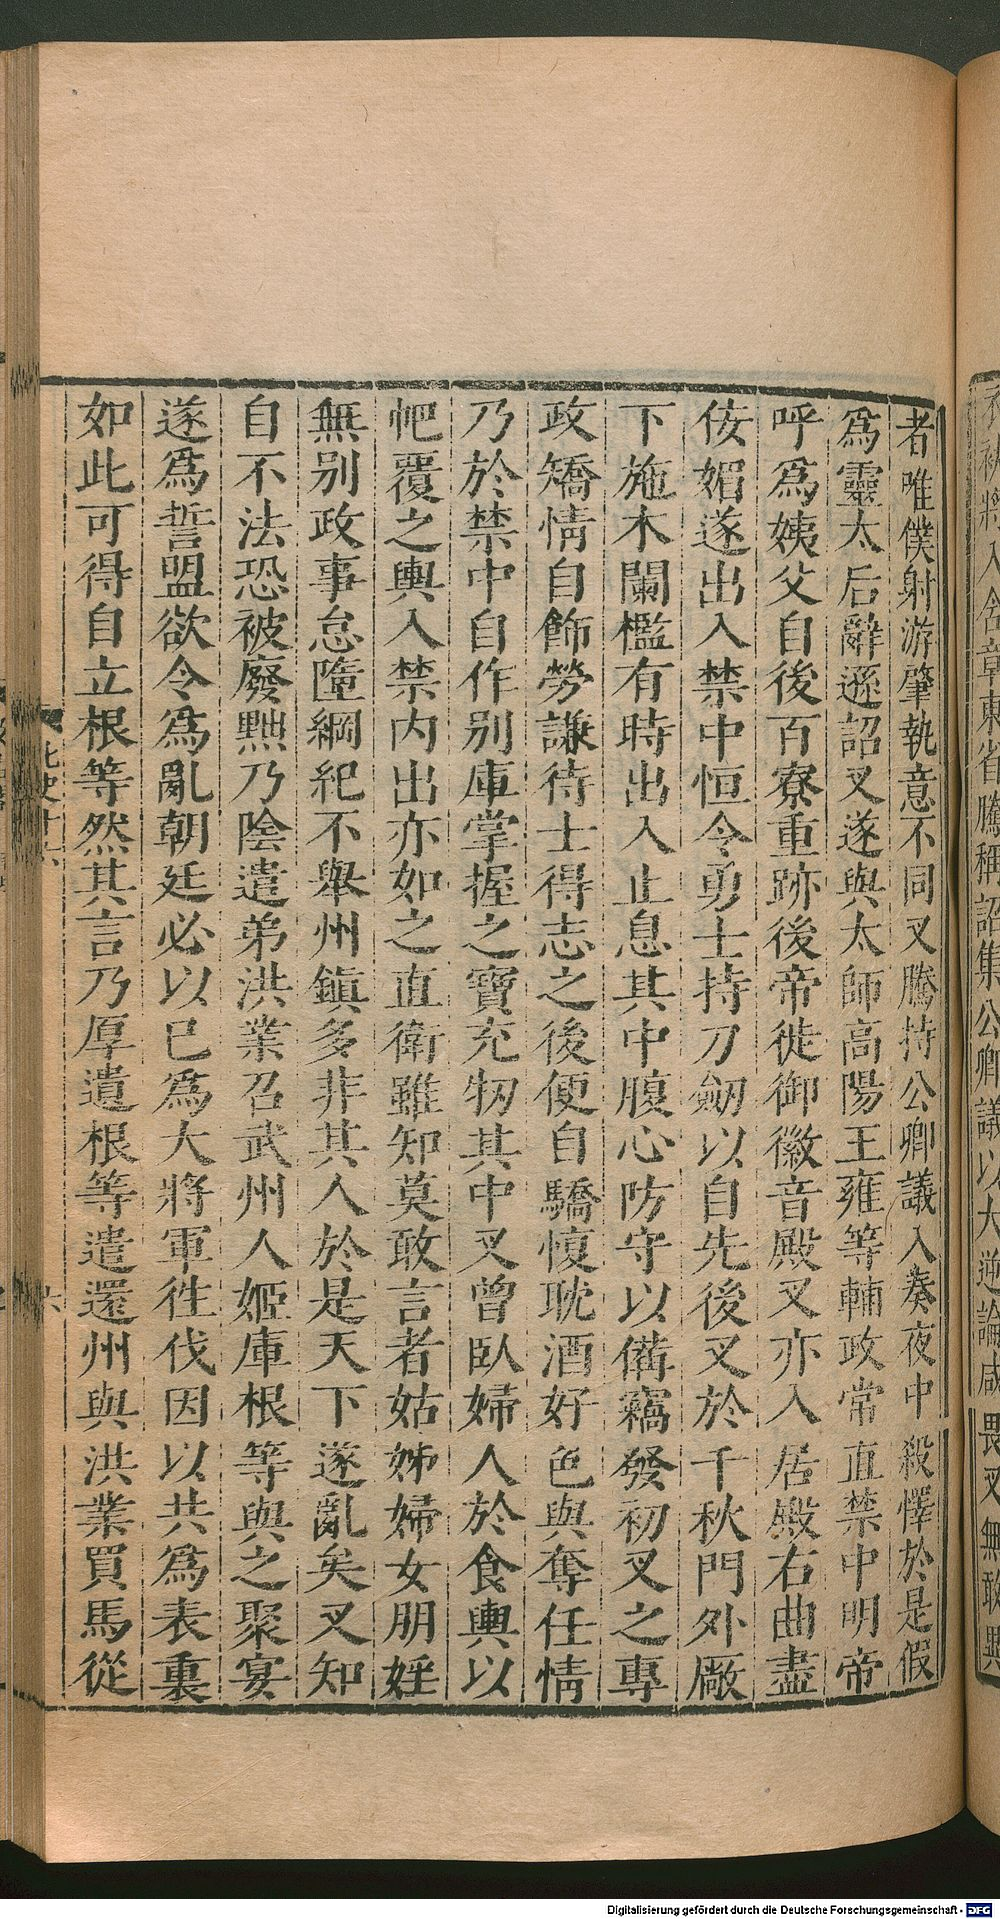 者唯僕射游肇執意不同叉騰持公卿議入奏夜中殺懌於是假
爲靈太后辭遜詔叉遂與太師高陽王雍等輔政常直禁中明帝
呼爲姨父自後百寮重跡後帝徙御徽音殿叉亦入居殿右曲盡
佞媚遂出入禁中恒令勇士持刀劒以自先後叉於千秋門外厰
下施木闌檻有時出入止息其中腹心防守以備竊發初叉之專
政矯情自飾勞謙待士得志之後便自驕愎耽酒好色與奪任情
乃於禁中自作别庫掌握之寶充牣其中叉曾臥婦人於食輿以
帊覆之輿入禁内出亦如之直衛雖知莫敢言者姑姊婦女朋婬
無别政事怠隳綱紀不舉州鎮多非其人於是天下遂亂矣叉知
自不法恐被廢黜乃陰遣弟洪業召武州人姬庫根等與之聚宴
遂爲誓盟欲令爲亂朝廷必以已爲大將軍徃伐因以共爲表裏
如此可得自立根等然其言乃厚遺根等遣還州與洪業買馬從
北史十六
Digitalisierung gefördert durch die Deutsche Forschungsgemeinschaft - DFG